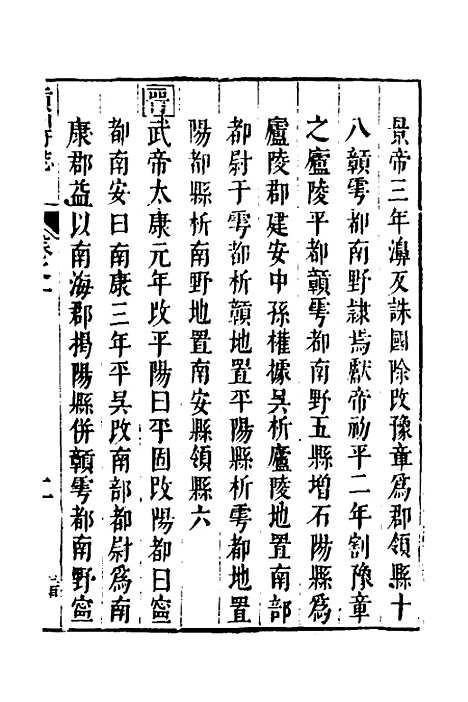 景帝三年濞反誅國除改豫章爲郡領縣十
八贛雩都南野隷焉獻帝初平二年割豫章
之廬陵平都贛雩都南野五縣增石陽縣爲
廬陵郡建安中孫權據吳析廬陵地置南部
都尉于雩都析贛地置平陽縣析雩都地置
陽都縣析南野地置南安縣領縣六
晉
武帝太康元年改平陽曰平固改陽都曰寧
都南安曰南康三年平吳改南部都尉爲南
康郡益以南海郡揭陽縣併贛雩都南野寧